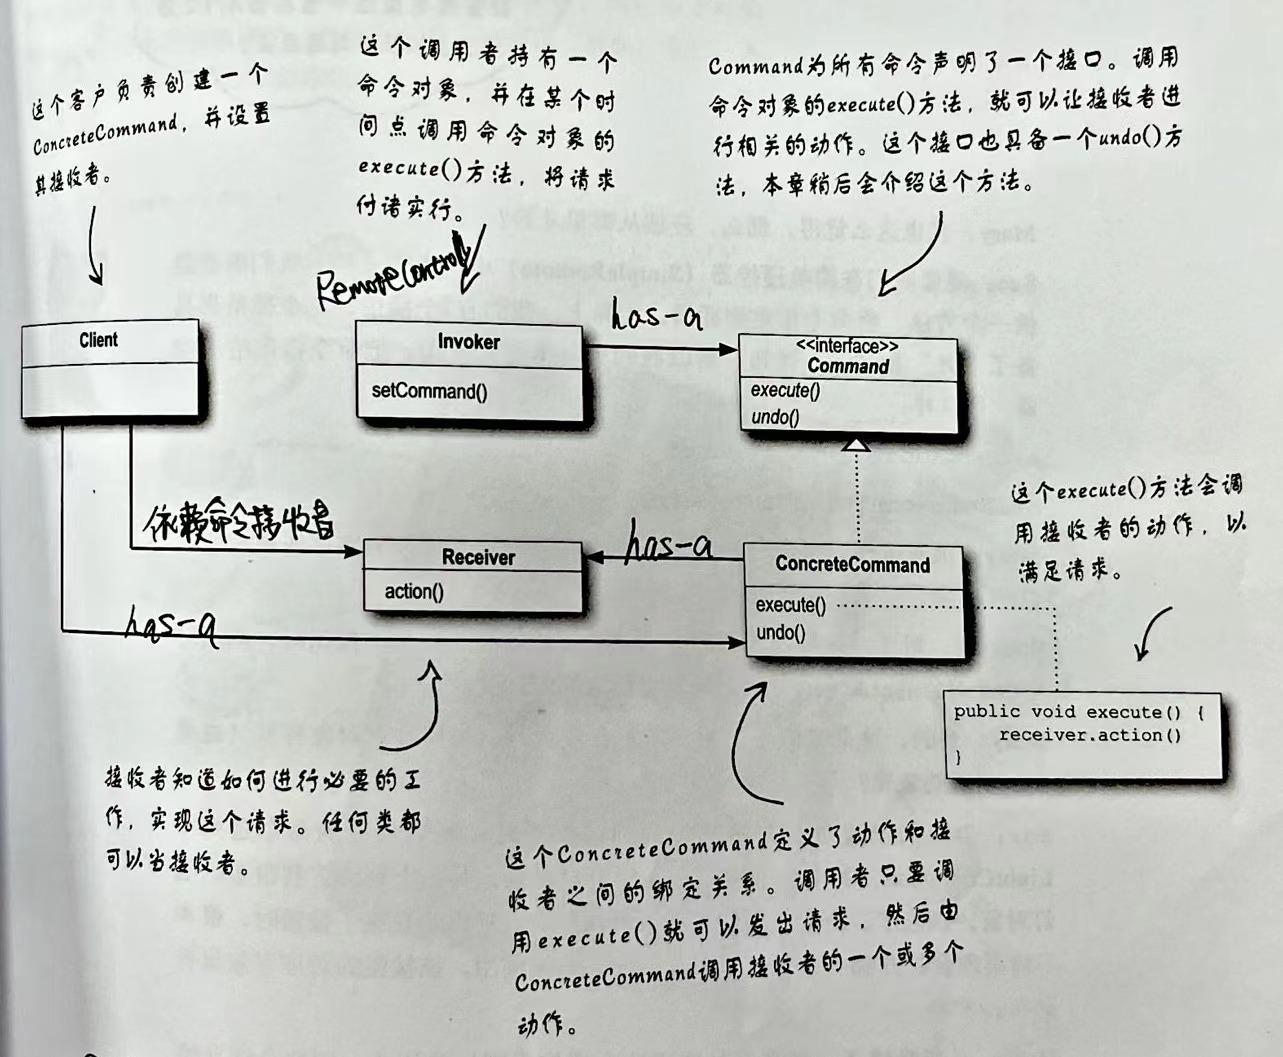 这个客户负责创建一个
ConcreteCommand，并设置
其接收者。
这个调用者持有一个
命令对象，并在某个时
间点调用命令对象的
execute()方法，将请求
付诸实行。
Command为所有命令声明了一个接口。调用
命令对象的execute()方法，就可以让接收者进
行相关的动作。这个接口也具备一个undo()方
法，本章稍后会介绍这个方法。
RemoteControl
has-a
Client
Invoker
setCommand()
<<interface>>
Command
execute()
undo()
这个execute()方法会调
用接收者的动作，以
满足请求。
依赖命令接收者
Receiver
action()
has-a
ConcreteCommand
execute()
undo()
has-a
public void execute() {
receiver.action()
}
接收者知道如何进行必要的工
作，实现这个请求。任何类都
可以当接收者。
这个ConcreteCommand定义了动作和接
收者之间的绑定关系。调用者只要调
用execute()就可以发出请求，然后由
ConcreteCommand调用接收者的一个或多个
动作。